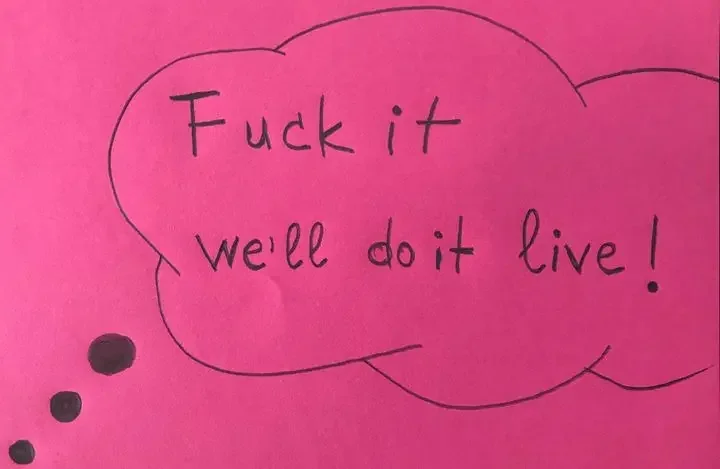 Fuck it
we'll do it live!